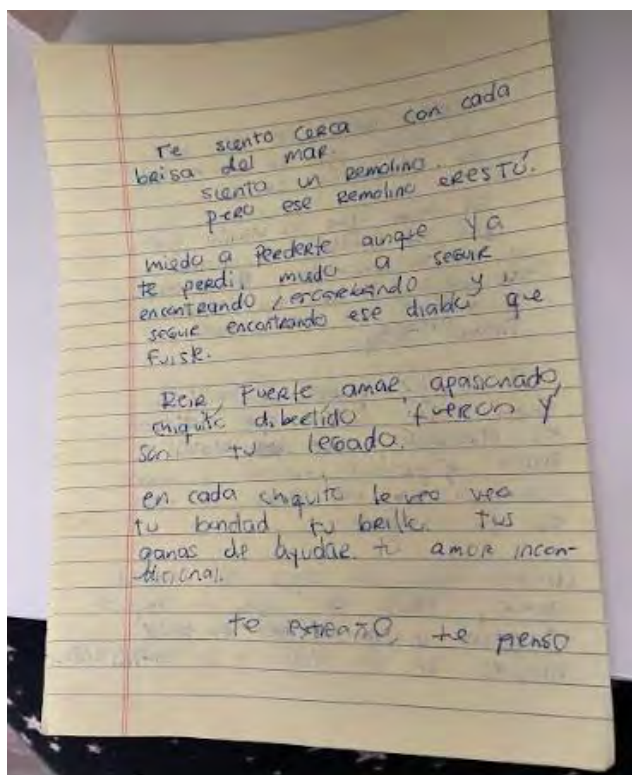 Te siento cerca con cada
brisa del mar.
siento un remolino.
pero ese remolino eres tú.
miedo a perderte aunque ya
te perdi, miedo a seguir
encontrando, escarbando y
seguir encontrando ese diablo que
fuiste.
Reir, fuerte amar, apasionado,
chiquito dibertido fueron y
son tu legado.
en cada chiquito te veo veo
tu bondad tu brillo. tus
ganas de ayudar. tu amor incon-
dicional.
te extraño, te pienso